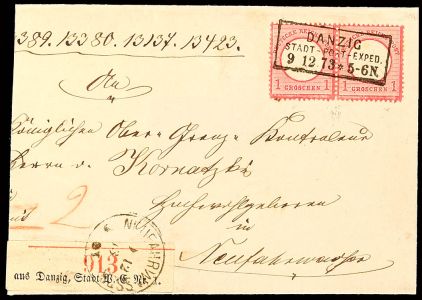 389. 13380. 13137. 13423.
DANZIG
STADT-POST-EXPED.
9 12 73 * 5-6N.
DEUTSCHE REICHS-POST
1 GROSCHEN 1
1 GROSCHEN 1
An
Königlichen Ober-Grenz-Kontroleur
Herrn v. Kornatzki
Hochwohlgeboren
in
Neufahrwasser
2
NEUFAHRWASSER
913
aus Danzig, Stadt-P.-E. Nr. 1.